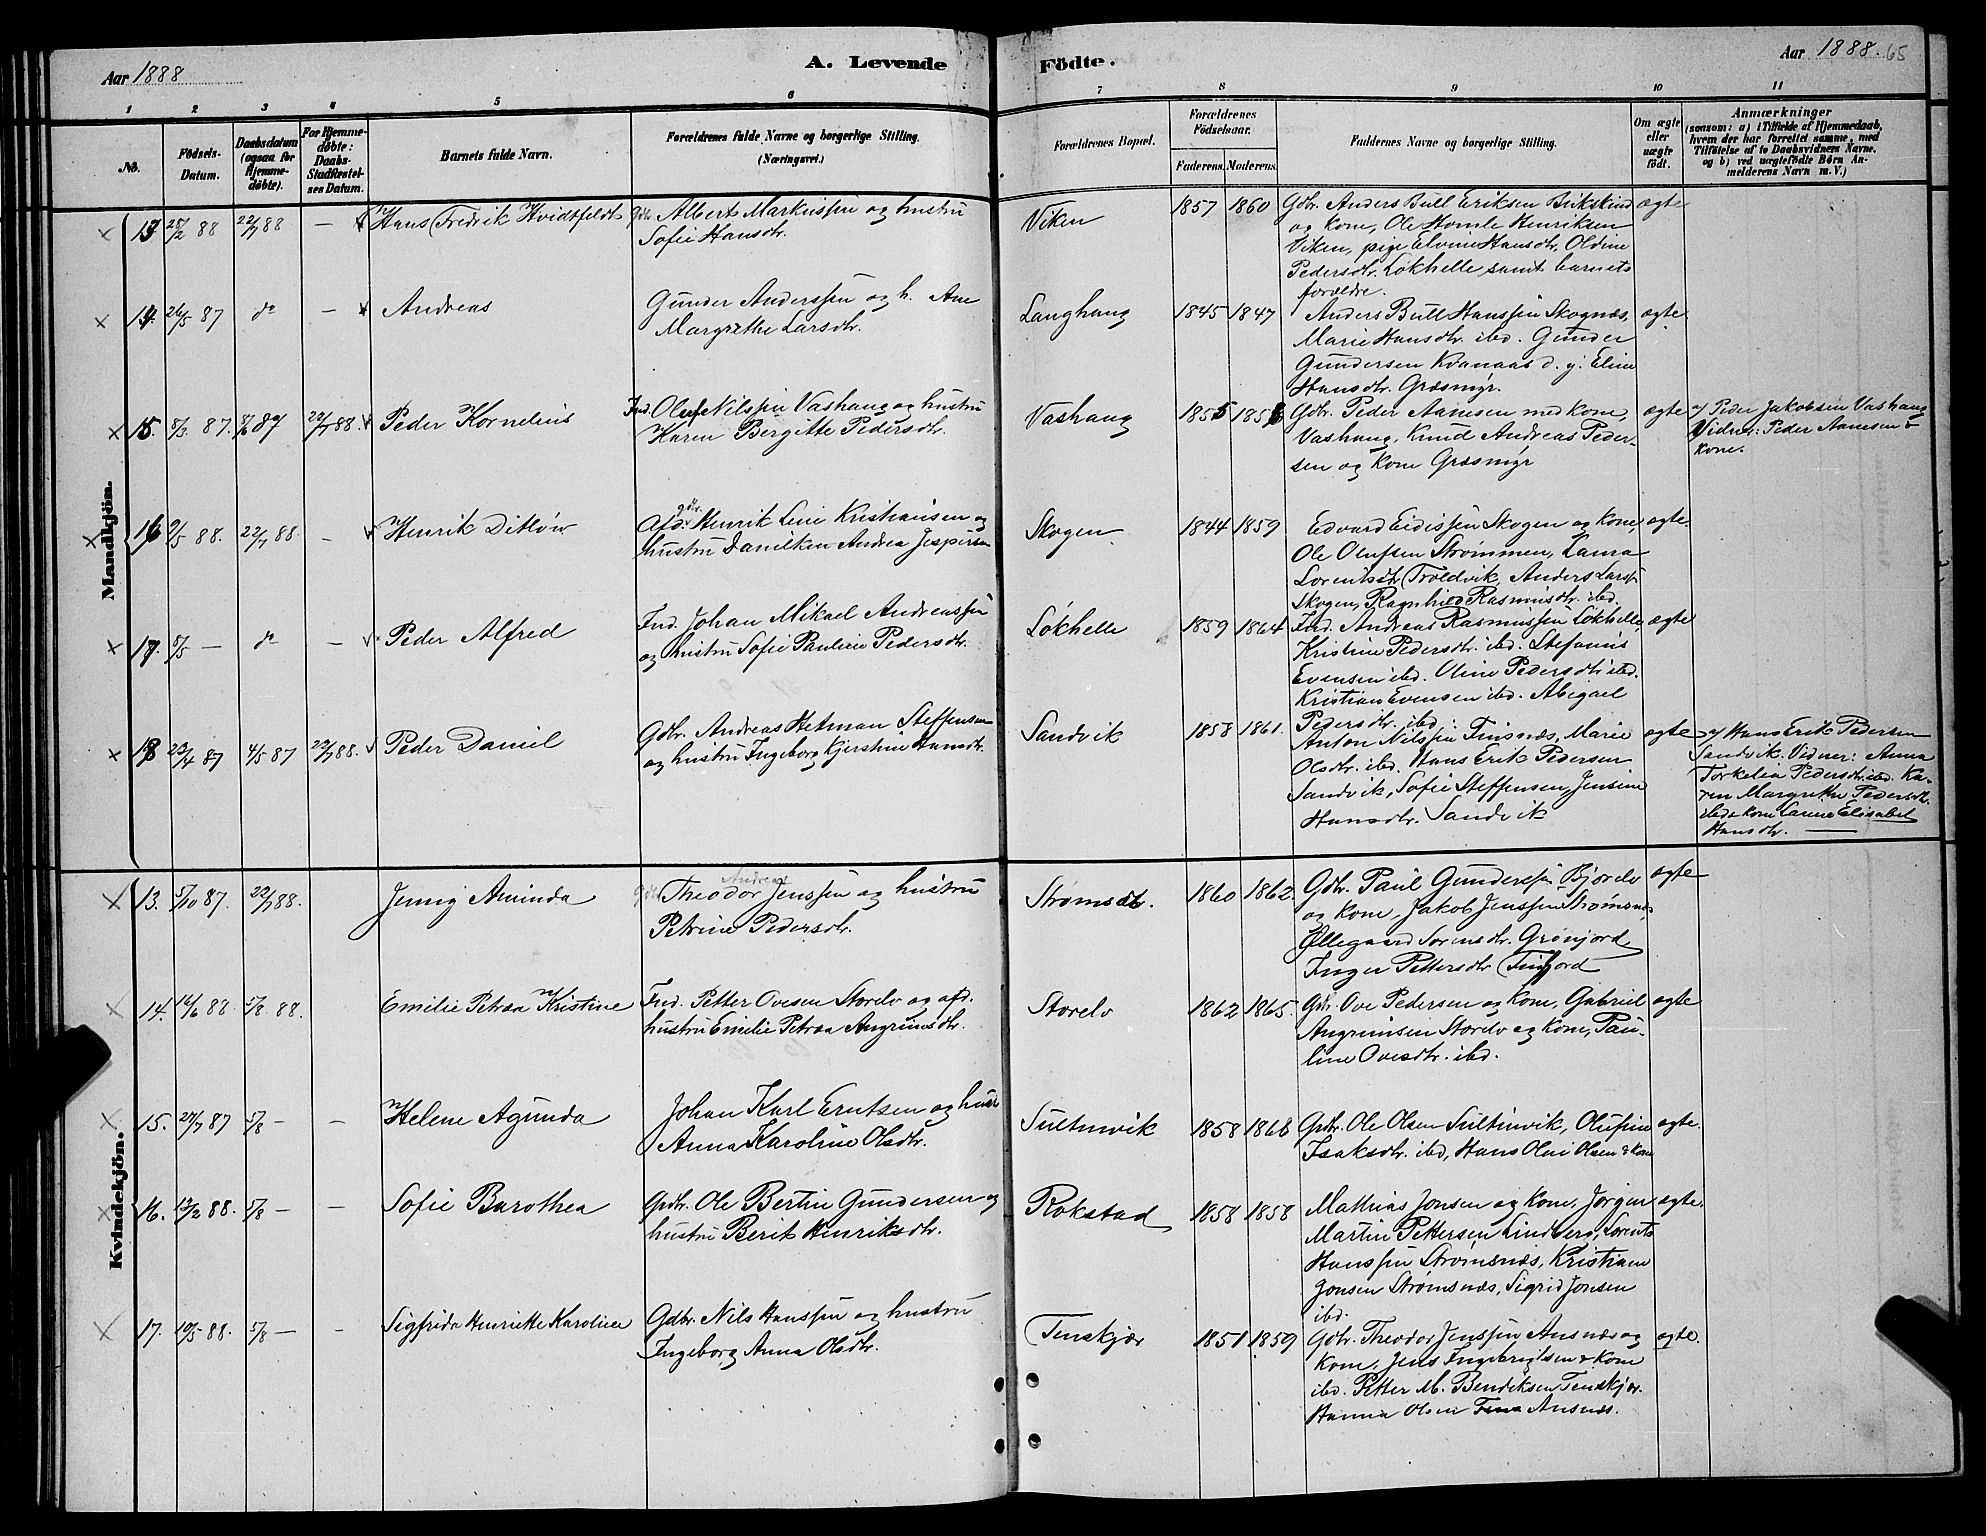 Aar 1888
A. Levende
Födte.
Aar 1888. 65
1 2 3 4 5 6 7 8 9 10 11
No.
Fødsels-
Datum.
Daabsdatum
(ogsaa for
Hjemme-
døbte).
For Hjemme-
døbte:
Daabs-
Stadfæstel-
ses Datum.
Barnets fulde Navn.
Forældrenes fulde Navne og borgerlige Stilling.
(Næringsvei.)
Forældrenes Bopæl.
Forældrenes
Fødselsaar.
Faderens. Moderens.
Faddernes Navne og borgerlige Stilling.
Om ægte
eller
uægte
født.
Anmærkninger
(saasom: a) i Tilfælde af Hjemmedaab,
hvem der har forrettet samme, med
Tilføielse af to Daabsvidners Navne.
og b) ved uægtefødte Børn An-
melderens Navn m. V.)
Mandkjön.
13 28/2 88 22/7 88 — Hans Fredrik Hvidtfeldt
Gdbr. Albert Markussen og hustru
Sofie Hansdtr.
Viken 1857 1860
Gdbr. Anders Bull Eriksen Birkskind
og kone, Ole Homle Henriksen
Viken, pige Elvine Hansdtr, Oldine
Pedersdtr. Løkhelle samt barnets
forældre.
ægte
14. 26/5 87 do — Andreas
Gunder Anderssen og h. Ane
Margrethe Larsdtr.
Langhaug 1845 1847
Anders Bull Hanssen Skognæs,
Marie Hansdtr. ibd. Gunder
Gundersen Kvanaas d. y. Eline
Hansdtr. Græsmyr.
ægte.
15. 8/3 87. 9/6 87 22/7 88. Peder Kornelius
Ind. Oluf Nilssen Vashaug og hustru
Karen Bergitte Pedersdtr.
Vashaug 1855
Gdbr. Peder Aamesen med kone,
Vashaug, Knud Andreas Peder-
sen og kone Græsmyr
ægte
v/ Peder Jakobsen Vashaug
Vidner: Peder Aamesen &
kone.
16 9/5 88. 22/7 88. — Henrik Ditløv
Afd. gdbr. Henrik Leie Kristiansen og
hustru Danilken Andrea Jespersen
Skogen 1844 1859
Edvard Eidissen Skogen og kone,
Ole Olufsen Strømmen, Laura
Lorentsdtr Troldvik, Anders Larss.
Skogen, Ragnhild Rasmusdtr. ibd.
ægte
17. 5/5 — do — Peder Alfred
Ind. Johan Mikael Andreassen
og hustru Sofie Pauline Pedersdtr.
Løkhelle 1859 1864
Ind. Andreas Rasmussen Løkhelle,
Kristine Pedersdtr. ibd. Stefanus
Evensen ibd. Oline Pedersdtr ibd.
Kristian Evensen ibd. Abigael
Pedersdtr. ibd.
ægte
18 23/4 87 4/5 87 22/7 88. Peder Daniel
Gdbr. Andreas Hetman Steffensen
og hustru Ingeborg Kjerstine Hansdtr.
Sandvik 1858 1861.
Anton Nilssen Finsnæs, Marie
Olsdtr. ibd. Hans Erik Pedersen
Sandvik, Sofie Steffensen, Jensine
Hansdtr. Sandvik
ægte
v/ Hans Erik Pedersen
Sandvik. Vidner: Anna
Torkelia Pedersdtr. ibd. Ka-
ren Margrethe Pedersdtr.
ibd & kone Lavine Elisabet
Hansdtr. —
Kvindekjön.
13. 5/10 87. 22/7 88. Jenny Aminda
Gdbr. Theodor Andreas Jenssen og hustru
Petrine Pedersdtr.
Strømsdt. 1860 1862.
Gdbr. Paul Gunderssen Bjorelv
og kone, Jakob Jenssen Strømsnes
Øllegaard Sørensdtr. Grønjord,
Inger Pettersdtr Finfjord
ægte
14. 16/6 88 5/8. 88. Emilie Petrea Kristine
Ind. Petter Ovesen Storelv og afd.
hustru Emilie Petrea Angrimsdtr.
Storelv 1862 1865.
Gdr. Ove Pedersen og kone, Gabriel
Angrimsen Storelv og kone, Pau-
line Ovesdtr. ibd.
ægte
15. 27/7 87 5/8 — — Helene Agunda
Johan Karl Erntsen og hustr
Anna Karoline Olsdtr.
Sultinvik 1858 1868
Gdbr. Ole Olsen Sultinvik, Olufine
Isaksdtr. ibd, Hans Olai Olsen & kone
ægte.
16. 13/2 88. 5/8 — — Sofie Barothea
Gdbr. Ole Bertin Gundersen og
hustru Berit Henriksdtr.
Rokstad 1858 1858
Mathias Jonsen og kone, Jørgen
Martin Pettersen Lindberg, Lorents
Hanssen Strømsnæs, Kristiane
Jonsen Strømsnæs, Sigrid Jonsen
ibd.
ægte.
17. 19/5 88. 5/8 — — Sigfrida Henriette Karoline
Gdbr. Nils Hanssen og hustru
Ingeborg Anna Olsdtr.
Tenskjær 1851 1859
Gdbr. Theodor Jenssen Ansnæs og
kone, Jens Ingebrigtsen & kone
ibd. Petter M. Bendiksen Tenskjær.
Hanna Olsen Ansnæs.
ægte.